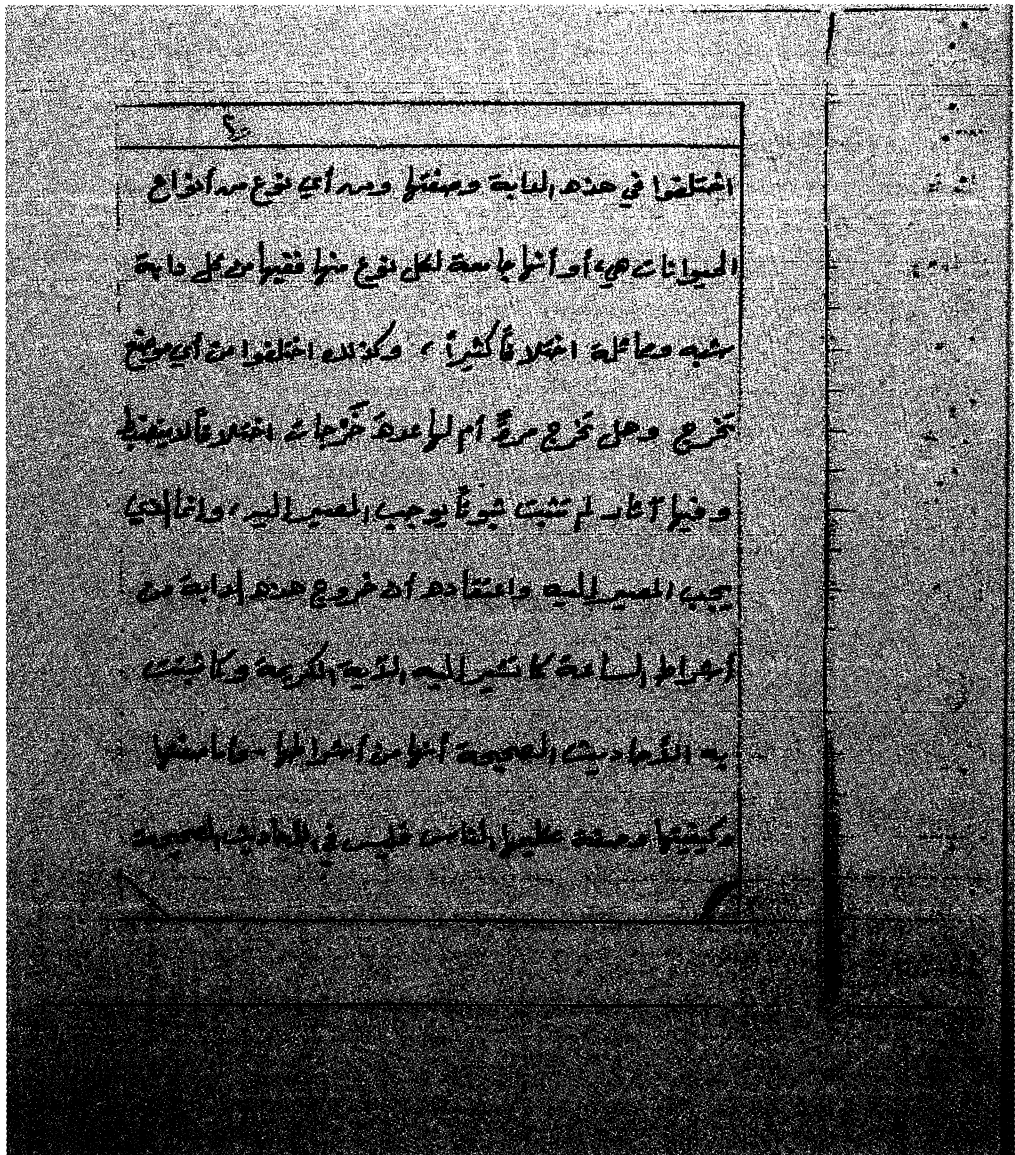 اختلفوا في هذه الدابة وصفتها ومن أي نوع من أنواع
الحيوانات هي، أو أنها جامعة لكل نوع منها ففيها من كل دابة
شبه ومماثلة اختلافاً كثيراً ، وكذلك اختلفوا من أي موضع
تخرج وهل تخرج مرةً أم لها عدة خَرْجات اختلافاً لا ينضبط
وفيها آثار لم تثبت ثبوتاً يوجب المصير اليه ، وانما الذي
يجب المصير اليه واعتقاده أن خروج هذه الدابة من
أشراط الساعة كما تشير اليه الآية الكريمة وكما ثبتت
به الأحاديث الصحيحة أنها من أشراطها ، وأما صفتها
وكيفيتها وصفة عملها الناس فليس في الأحاديث الصحيحة